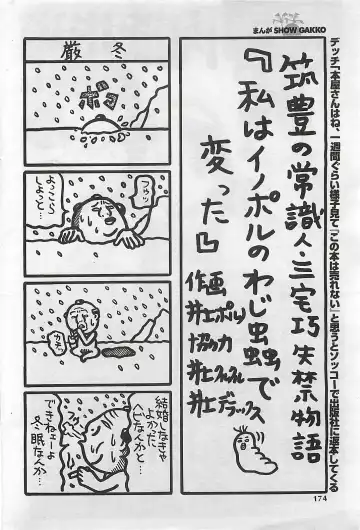 まんが SHOW GAKKO
デッチ「本屋さんはね、一週間ぐらい様子見て『この本は売れない』と思うとソッコーで出版社に返本してくる
筑豊の常識人・三宅巧失禁物語
『私はイノポルのわじ蟲で
変った』
作画
井上ポルノ
協力
井上デラックス
厳冬
ボコ
フゥッ
よっこら
しょっと…
結婚しなきゃ
よかった
ごなんか…
できねェーよ
冬眠なんか…
174